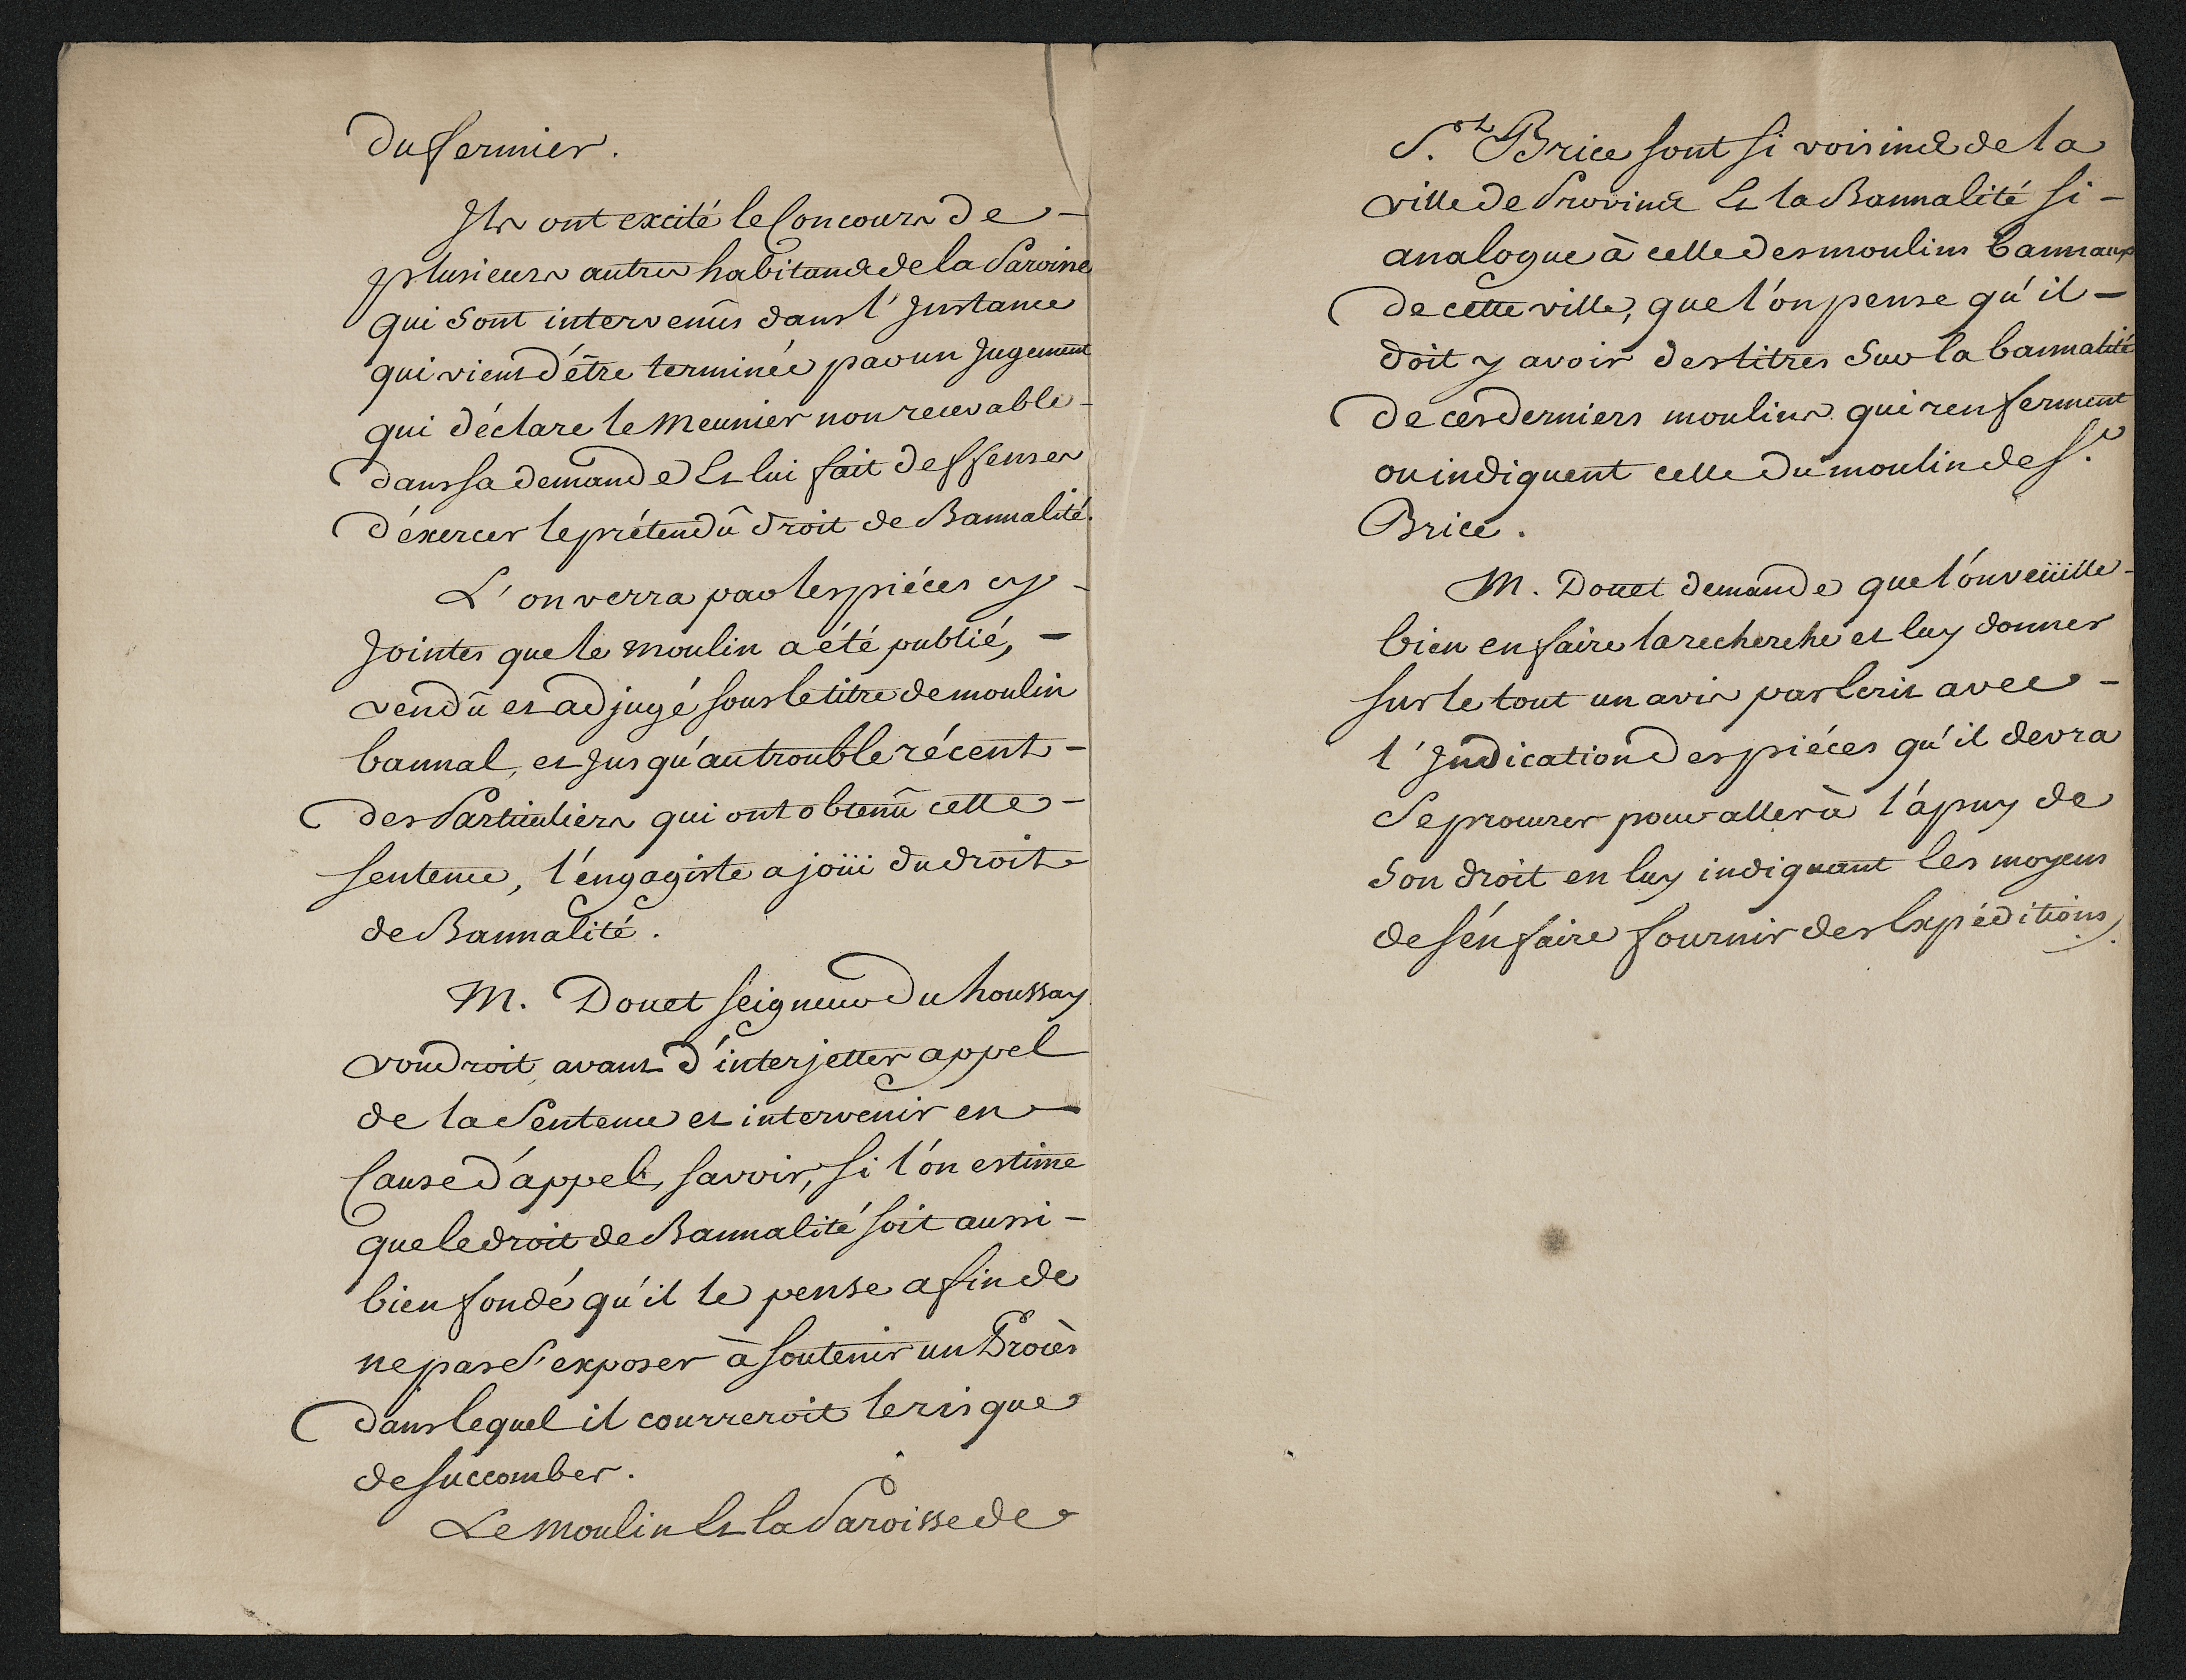 du fermier.
Ils ont excité le Concours de –
plusieurs autres habitands de la Paroisse
qui sont intervenûs dans l'Instance
qui vient d'être terminée par un Jugement
qui déclare le Meunier non recevable –
dans sa demande Et lui fait deffenses
d'éxercer le prétendû droit de Bannalité.
L'on verra par les piéces cy –
Jointes que le moulin a été publié, –
vendû et adjugé sous le titre de moulin
bannal, et Jusqu'au trouble récent –
des Particuliers qui ont obtenû cette –
sentence, l'éngagiste a joüi du droit
de Bannalité.
M. Douet seigneur du houssay
voudroit, avant d'interjetter appel
de la Sentence et intervenir en –
Cause d'appel, savoir, si l'ón estime
que le droit de Bannalité soit aussi –
bien fondé qu'il le pense afin de
ne pas s'exposer à soutenir un Procès
dans lequel il courreroit le risque
de succomber.
Le Moulin Et la Paroisse de
S.t Brice sont si voisins de la
ville de Provins Et la Bannalité si –
analogue à celle des moulins bannaux
de cette ville, que l'ón pense qu'il –
doit y avoir des titres sur la bannalité
de ces derniers moulins qui renferment
ou indiquent celle du moulin de S.t
Brice.
M. Douet demande que l'ón veüille –
bien en faire la recherche et luy donner
sur le tout un avis par Ecrit avec –
l'Indication des piéces qu'il devra
se procurer pour aller à l'ápuy de
son droit en luy indiquant les moyens
de s'én faire fournir des Expéditions.